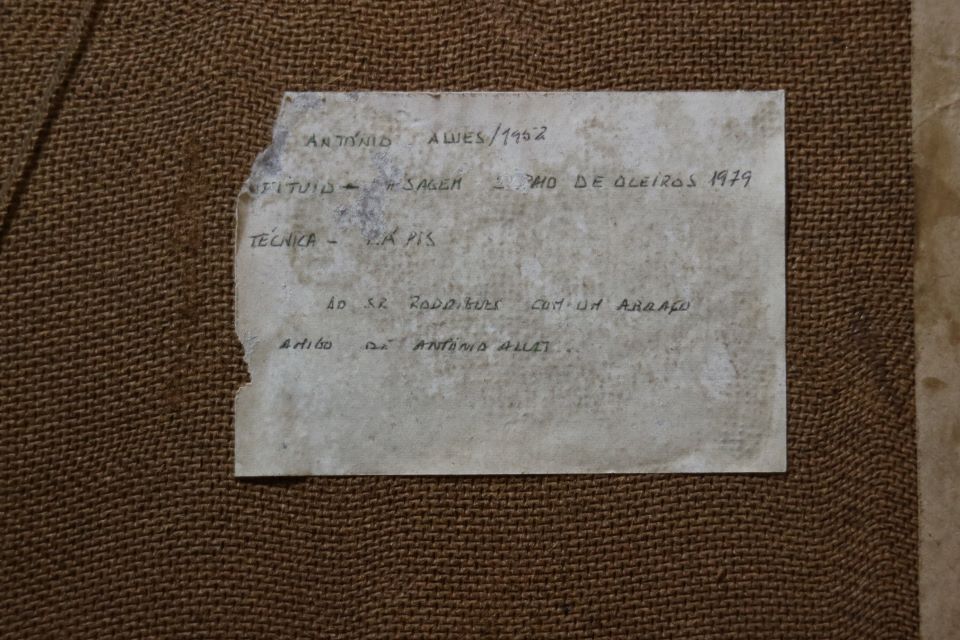 ANTÓNIO ALVES/1952
TITULO - PAISAGEM S. PAIO DE OLEIROS 1979
TÉCNICA - LÁPIS
AO SR RODRIGUES COM UM ABRAÇO
AMIGO DE ANTÓNIO ALVES...